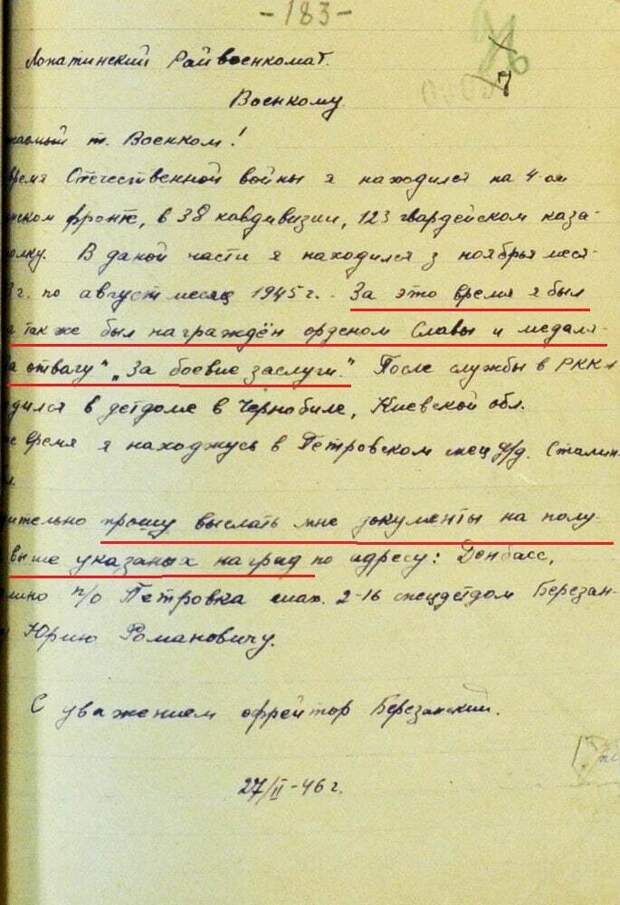 -183-
7
Лопатинский Райвоенкомат.
Военкому
т. Военком!
время Отечественной войны я находился на 4-ом
фронте, в 38 кавдивизии, 123 гвардейском каза-
полку. В даной части я находился з ноября меся-
г. по август месяц 1945 г. За это время я был
а так же был награждён орденом Славы и медаля-
за отвагу" „За боевие заслуги." После службы в РККА
дился в детдоме в Чернобиле, Киевской обл.
время я нахожусь в Петровском спец д/д. Сталин-
л.
ительно прошу выслать мне документы на полу-
выше указаных наград по адресу: Донбасс,
лино п/о Петровка шах. 2-16 спецдетдом Березан-
Юрию Романовичу.
С уважением ефрейтор Березанский.
27/II-46 г.